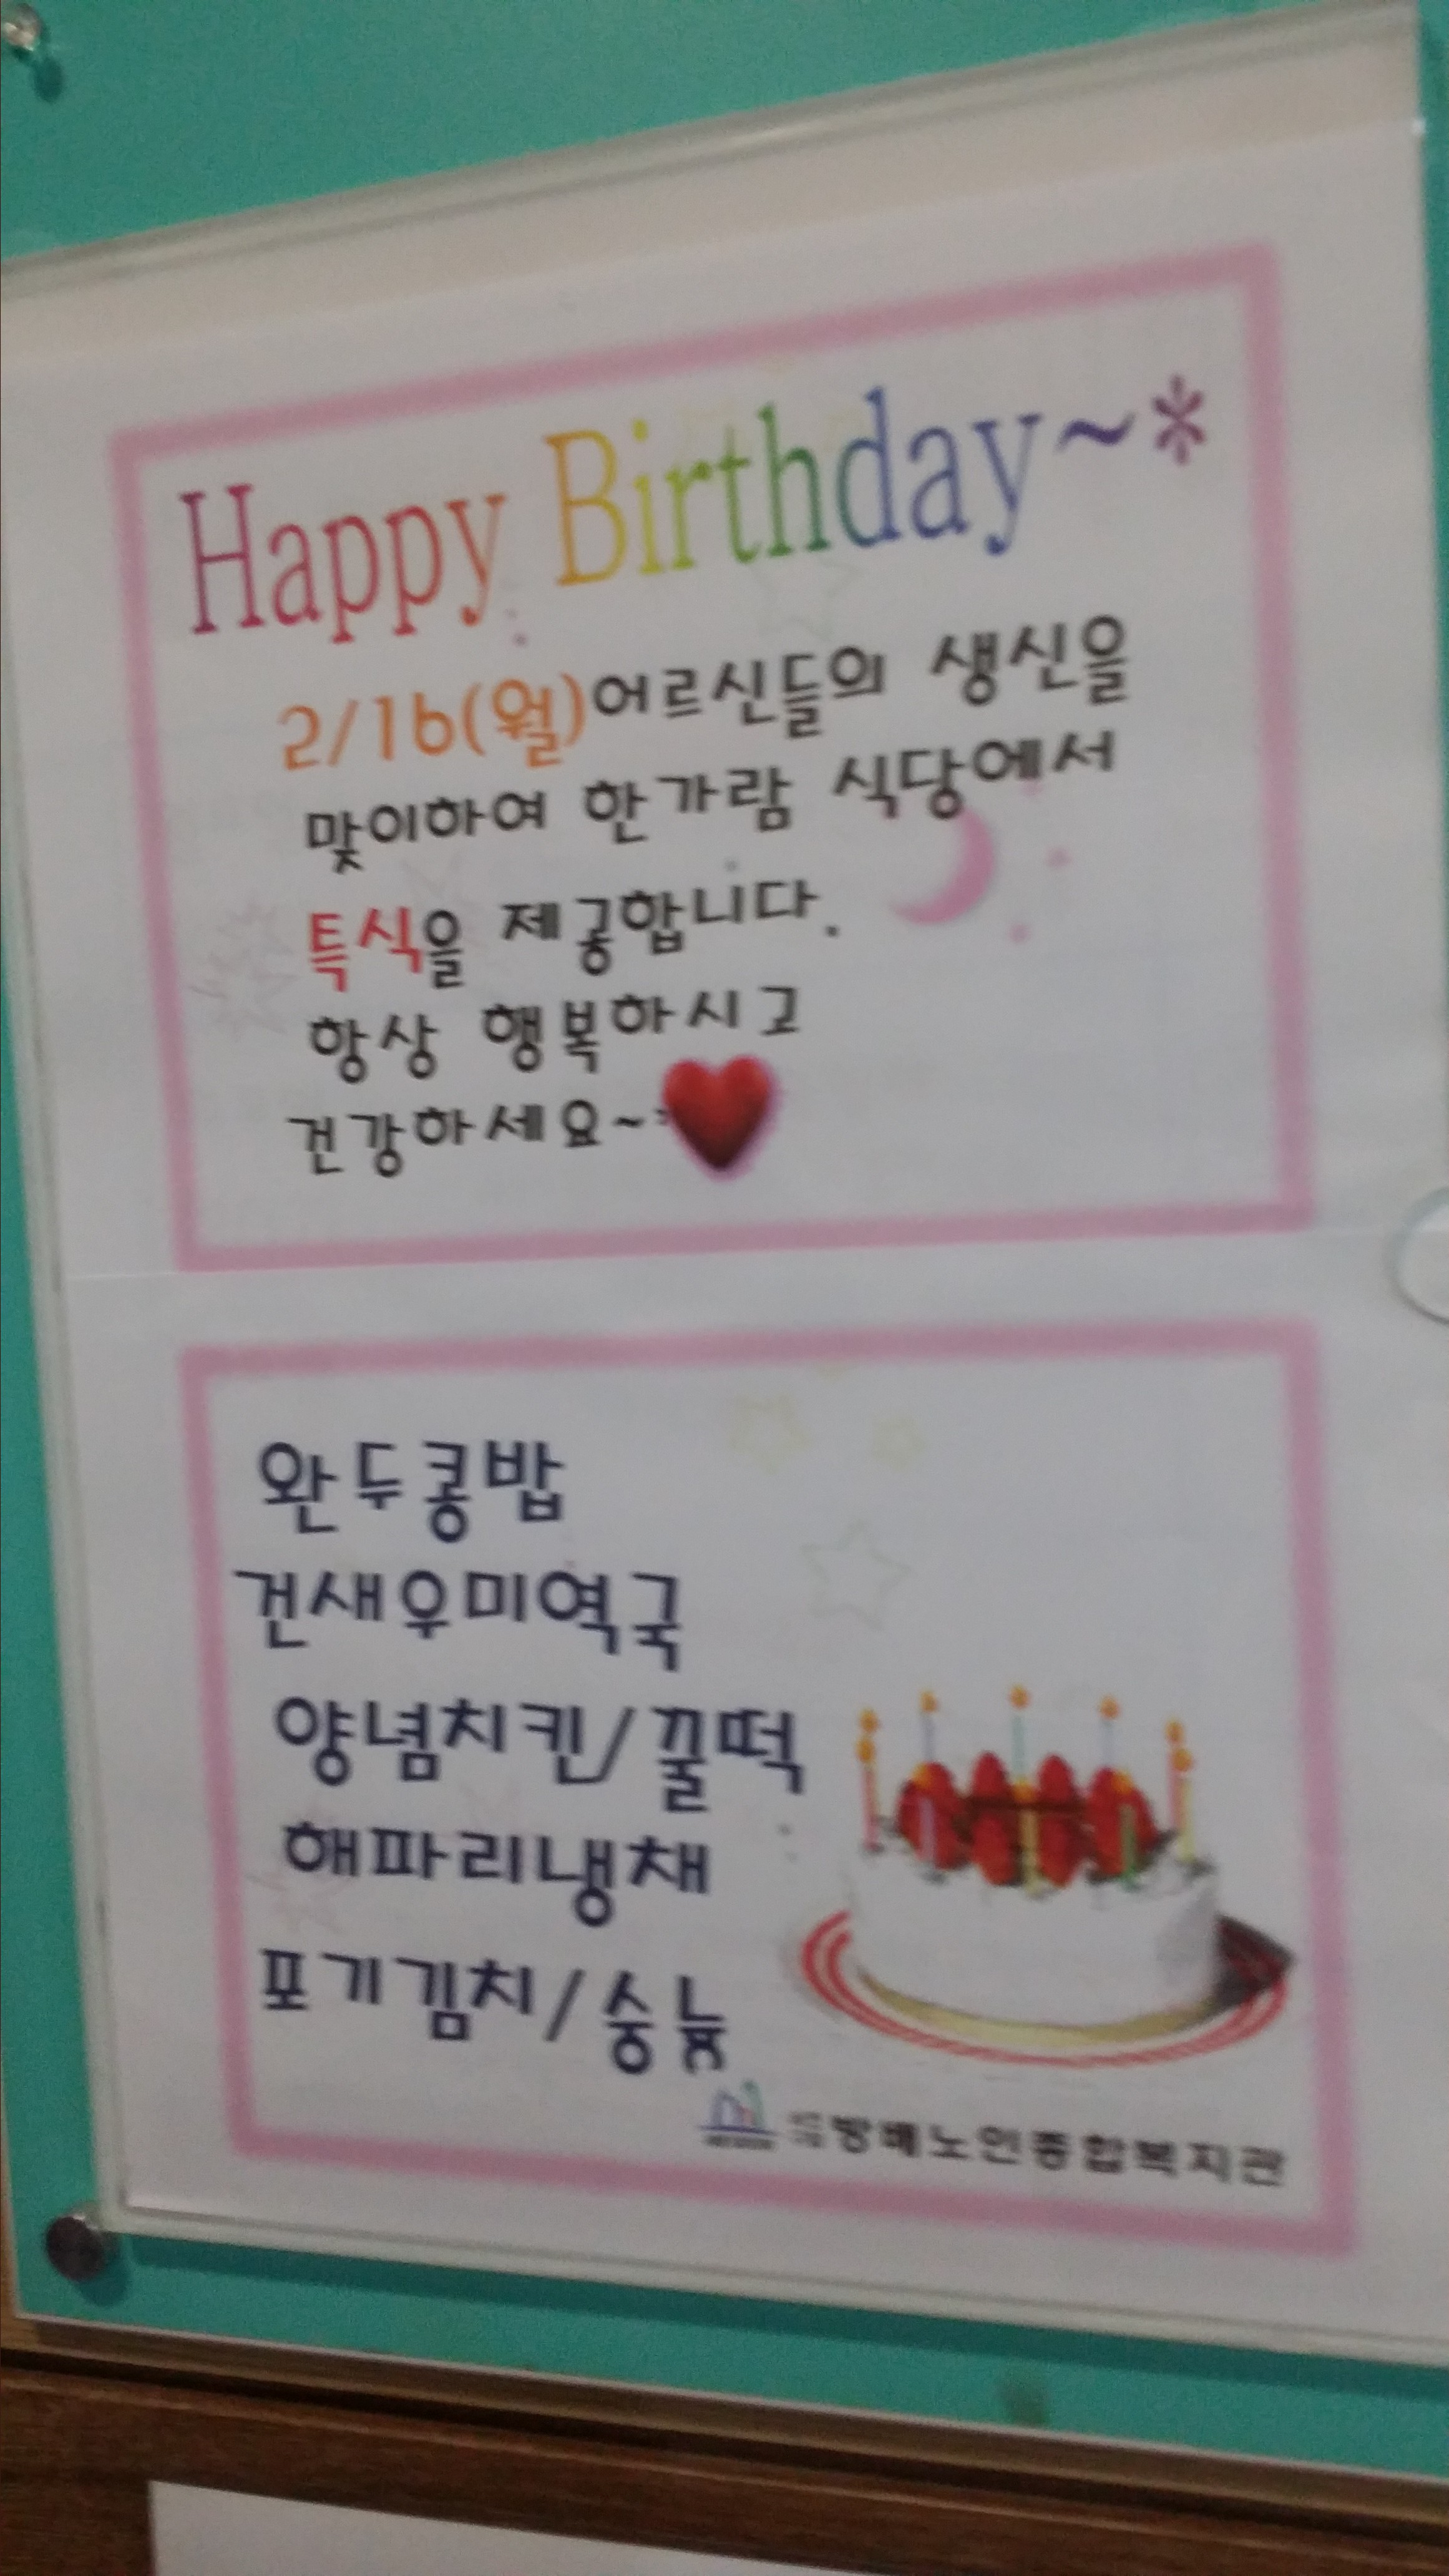 Happy Birthday~*
2/16(월)어르신들의 생신을
맞이하여 한가람 식당에서
특식을 제공합니다.
항상 행복하시고
건강하세요~
완두콩밥
건새우미역국
양념치킨/꿀떡
해파리냉채
포기김치/숭늉
방배노인종합복지관